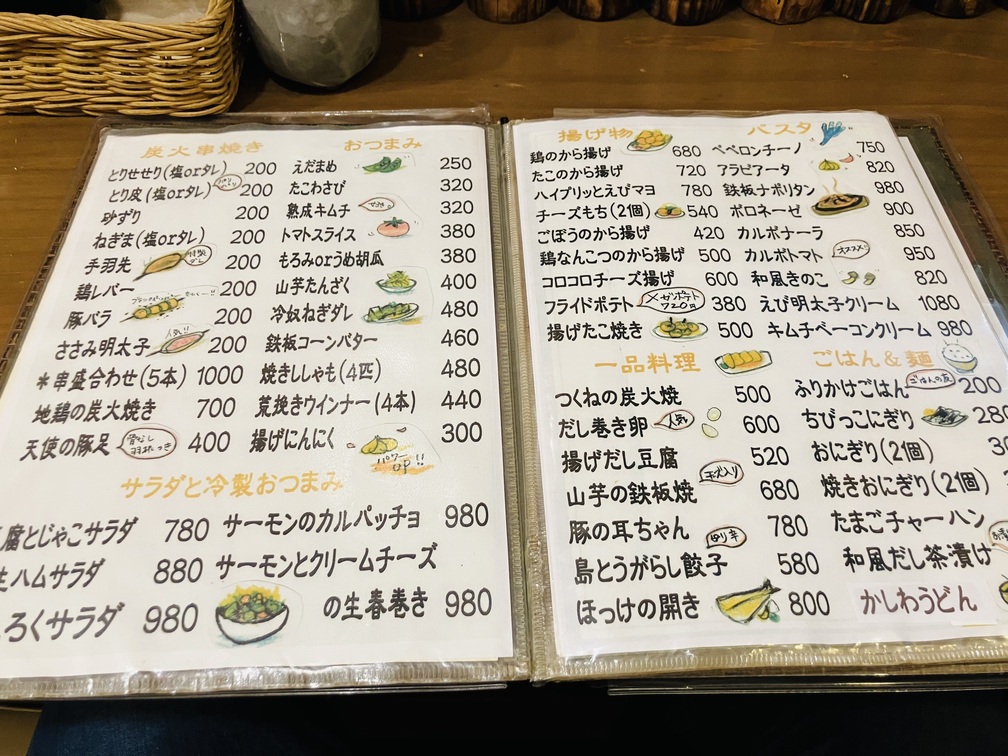 炭火串焼き
とりせせり(塩orタレ) 200
とり皮(塩orタレ) 200
砂ずり 200
ねぎま(塩orタレ) 200
手羽先 200
鶏レバー 200
豚バラ 200
ささみ明太子 人気!! 200
*串盛合わせ(5本) 1000
地鶏の炭火焼き 700
天使の豚足 400
おつまみ
えだまめ 250
たこわさび 320
熟成キムチ 320
トマトスライス 380
もろみorうめ胡瓜 380
山芋たんざく 400
冷奴ねぎダレ 480
鉄板コーンバター 460
焼きししゃも(4匹) 480
荒挽きウインナー(4本) 440
揚げにんにく 300
パワーup!!
サラダと冷製おつまみ
腐とじゃこサラダ 780
ハムサラダ 880
ろくサラダ 980
サーモンのカルパッチョ 980
サーモンとクリームチーズ
の生春巻き 980
揚げ物
鶏のから揚げ 680
たこのから揚げ 720
ハイブリッとえびマヨ 780
チーズもち(2個) 540
ごぼうのから揚げ 420
鶏なんこつのから揚げ 500
コロコロチーズ揚げ 600
フライドポテト メガポテト 720円 380
揚げたこ焼き 500
パスタ
ペペロンチーノ 750
アラビアータ 820
鉄板ナポリタン 980
ボロネーゼ 900
カルボナーラ 850
カルボトマト オススメ!! 950
和風きのこ 820
えび明太子クリーム 1080
キムチベーコンクリーム 980
一品料理
つくねの炭火焼 500
だし巻き卵 人気! 600
揚げだし豆腐 520
山芋の鉄板焼 680
豚の耳ちゃん 780
島とうがらし餃子 580
ほっけの開き 800
ごはん&麺
ふりかけごはん ごはんの友 200
ちびっこにぎり 28
おにぎり(2個)
焼きおにぎり(2個)
たまごチャーハン
和風だし茶漬け
かしわうどん